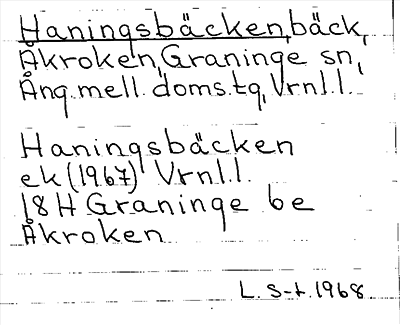 Haningsbäcken, bäck,
Åkroken, Graninge sn,
Ång. mell. doms.tg, Vrnl.l.
Haningsbäcken
ek (1967) Vrnl.l.
18H Graninge 6e
Åkroken
L. S-t. 1968